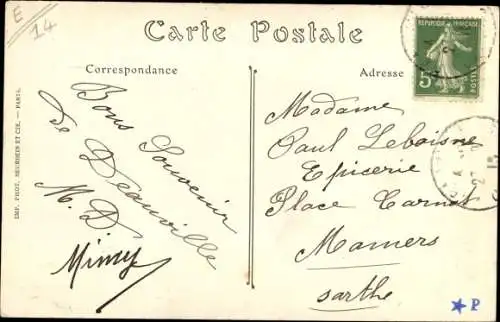 E
14
Carte Postale
Correspondance
Adresse
REPUBLIQUE FRANCAISE
5c
POSTES
IMP. PHOT. NEURDEIN ET CIE. — PARIS.
Bons Souvenir
De Deauville
M. D.
Mimy
Madame
Paul Leboisne
Epicerie
Place Carnot
Mamers
Sarthe
★ P